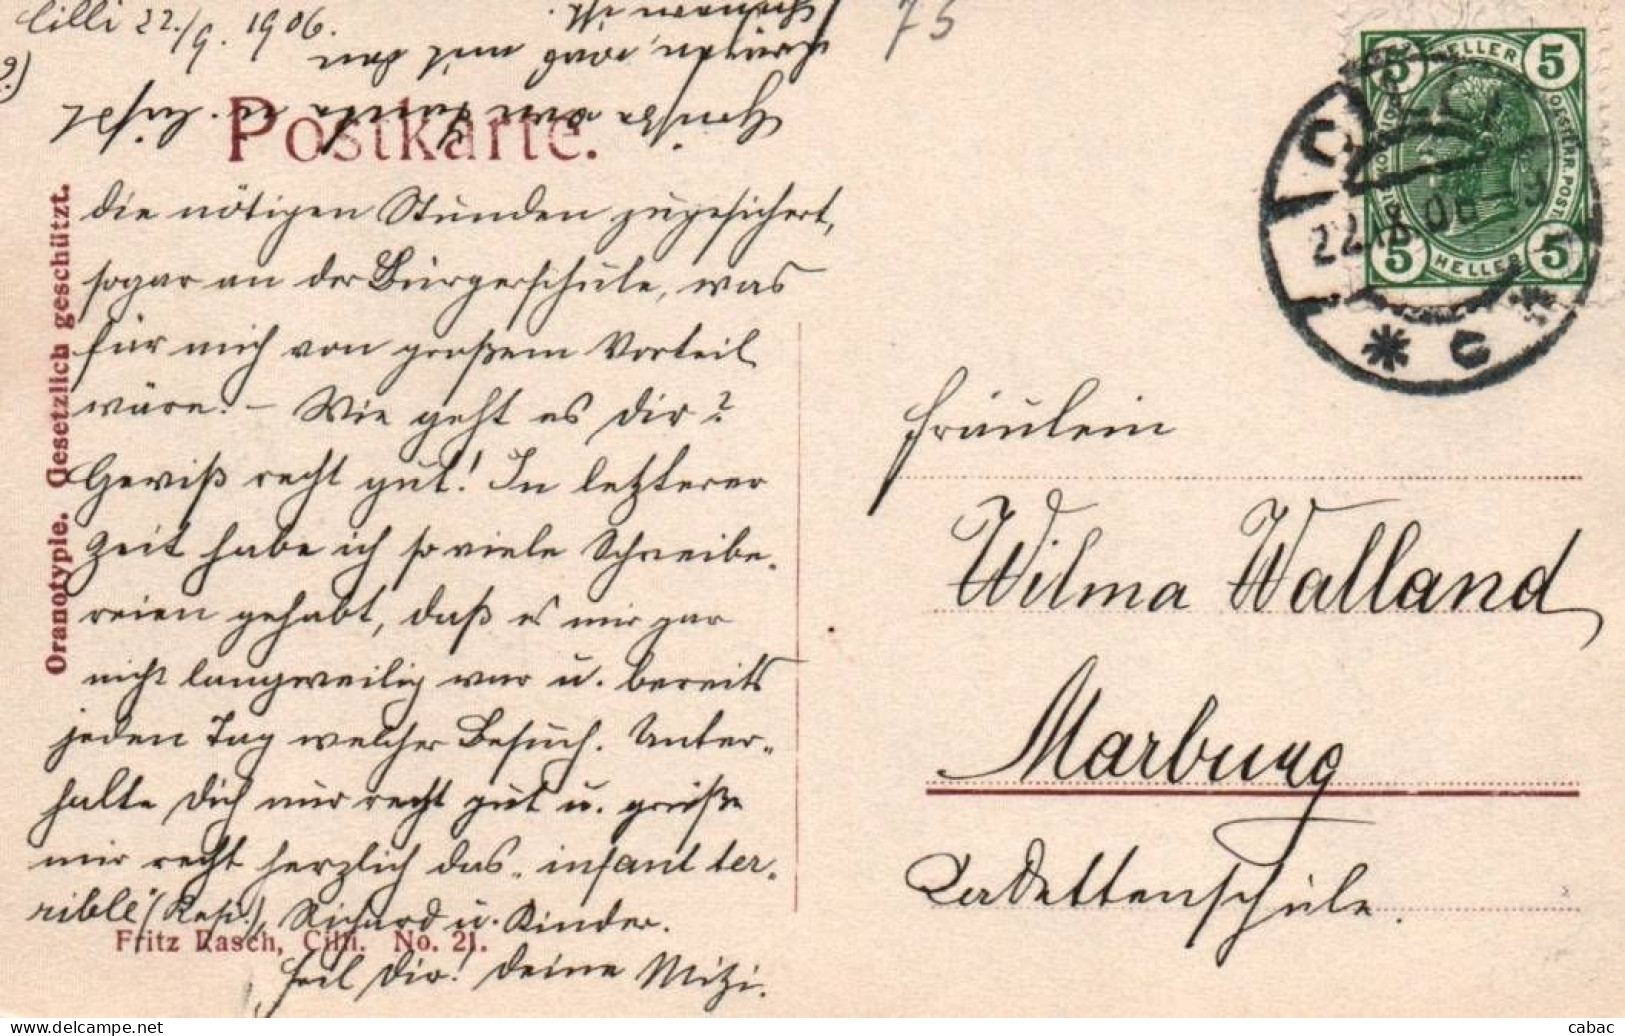 Cilli 22./9. 1906.
75
Postkarte.
Oranotypie. Gesetzlich geschützt.
die nötigen Stunden zugesichert,
sogar an der Bürgerschule, was
für mich von großem Vorteil
wäre. – Wie geht es Dir?
Gewiß recht gut! In letzterer
Zeit habe ich so viele Schreibe-
reien gehabt, daß es mir gar
nicht langweilig war u. bereits
jeden Tag welcher Besuch. Unter-
halte Dich nur recht gut u. grüße
mir recht herzlich das „infant ter-
rible" Richard u. Kinder.
Heil Dir! Deine Mitzi.
Fritz Rasch, Cilli. No. 21.
5 HELLER 5
OESTERR. POST.
5 HELLER 5
CILLI
22. 06
* c *
Fräulein
Wilma Walland
Marburg
Kadettenschule.
cabac
www.delcampe.net